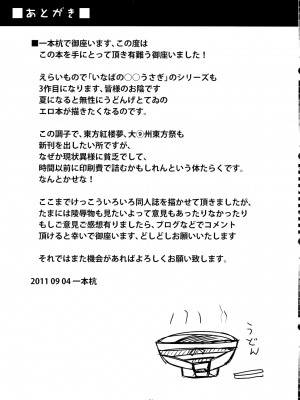 ■あとがき■
■一本杭で御座います、この度は
この本を手にとって頂き有難う御座いました！
えらいもので「いなばの◯◯うさぎ」のシリーズも
3作目になります、皆様のお陰です
夏になると無性にうどんげとてゐの
エロ本が描きたくなるのです。
この調子で、東方紅楼夢、大⑨州東方祭も
新刊を出したい所ですが、
なぜか現状異様に貧乏でして、
時間以前に印刷費で詰むかもしれんという体たらくです。
なんとかせな！
ここまでけっこういろいろ同人誌を描かせて頂きましたが、
たまには陵辱物も見たいよって意見もあったりなかったり
もしご意見ご感想有りましたら、ブログなどでコメント
頂けると幸いで御座います、どしどしお願いいたします
それではまた機会があればよろしくお願い致します。
2011 09 04 一本杭
うどん